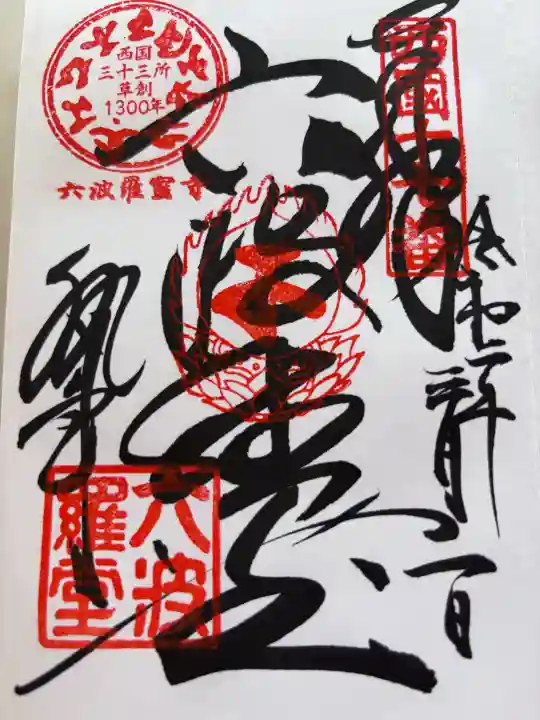 西国
三十三所
草創
1300年
六波羅蜜寺
西國十七番
奉拝
令和二年三月一日
六波羅堂
六波
羅堂